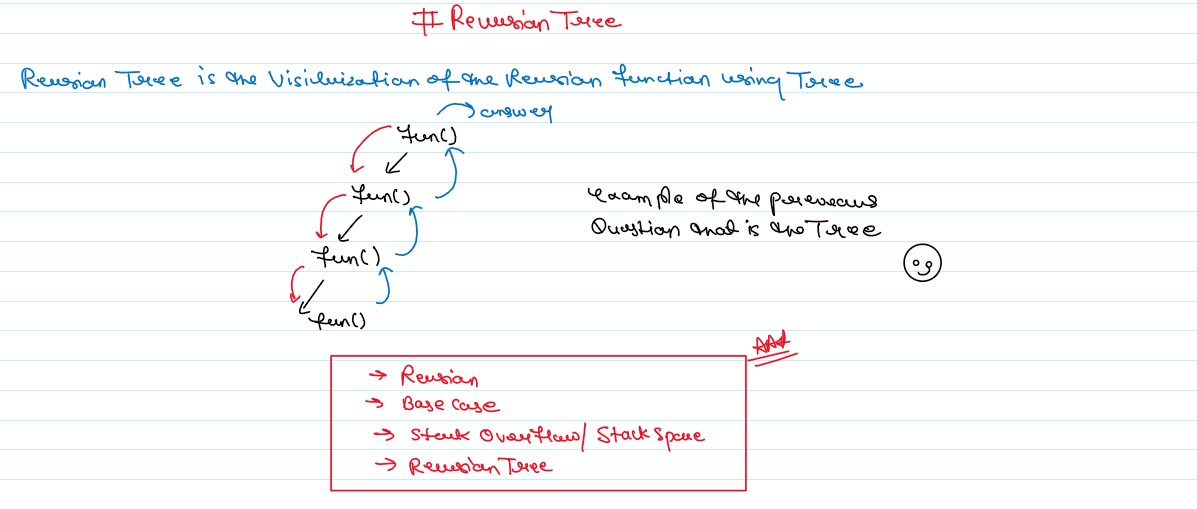 # Recursion Tree
Recursion Tree is the Visiluization of the Recursion function using Tree
answer
fun()
fun()
fun()
fun()
example of the preveous
Question that is the Tree
→ Recursion
→ Base Case
→ Stack Overflow/ Stack Space
→ Recursion Tree